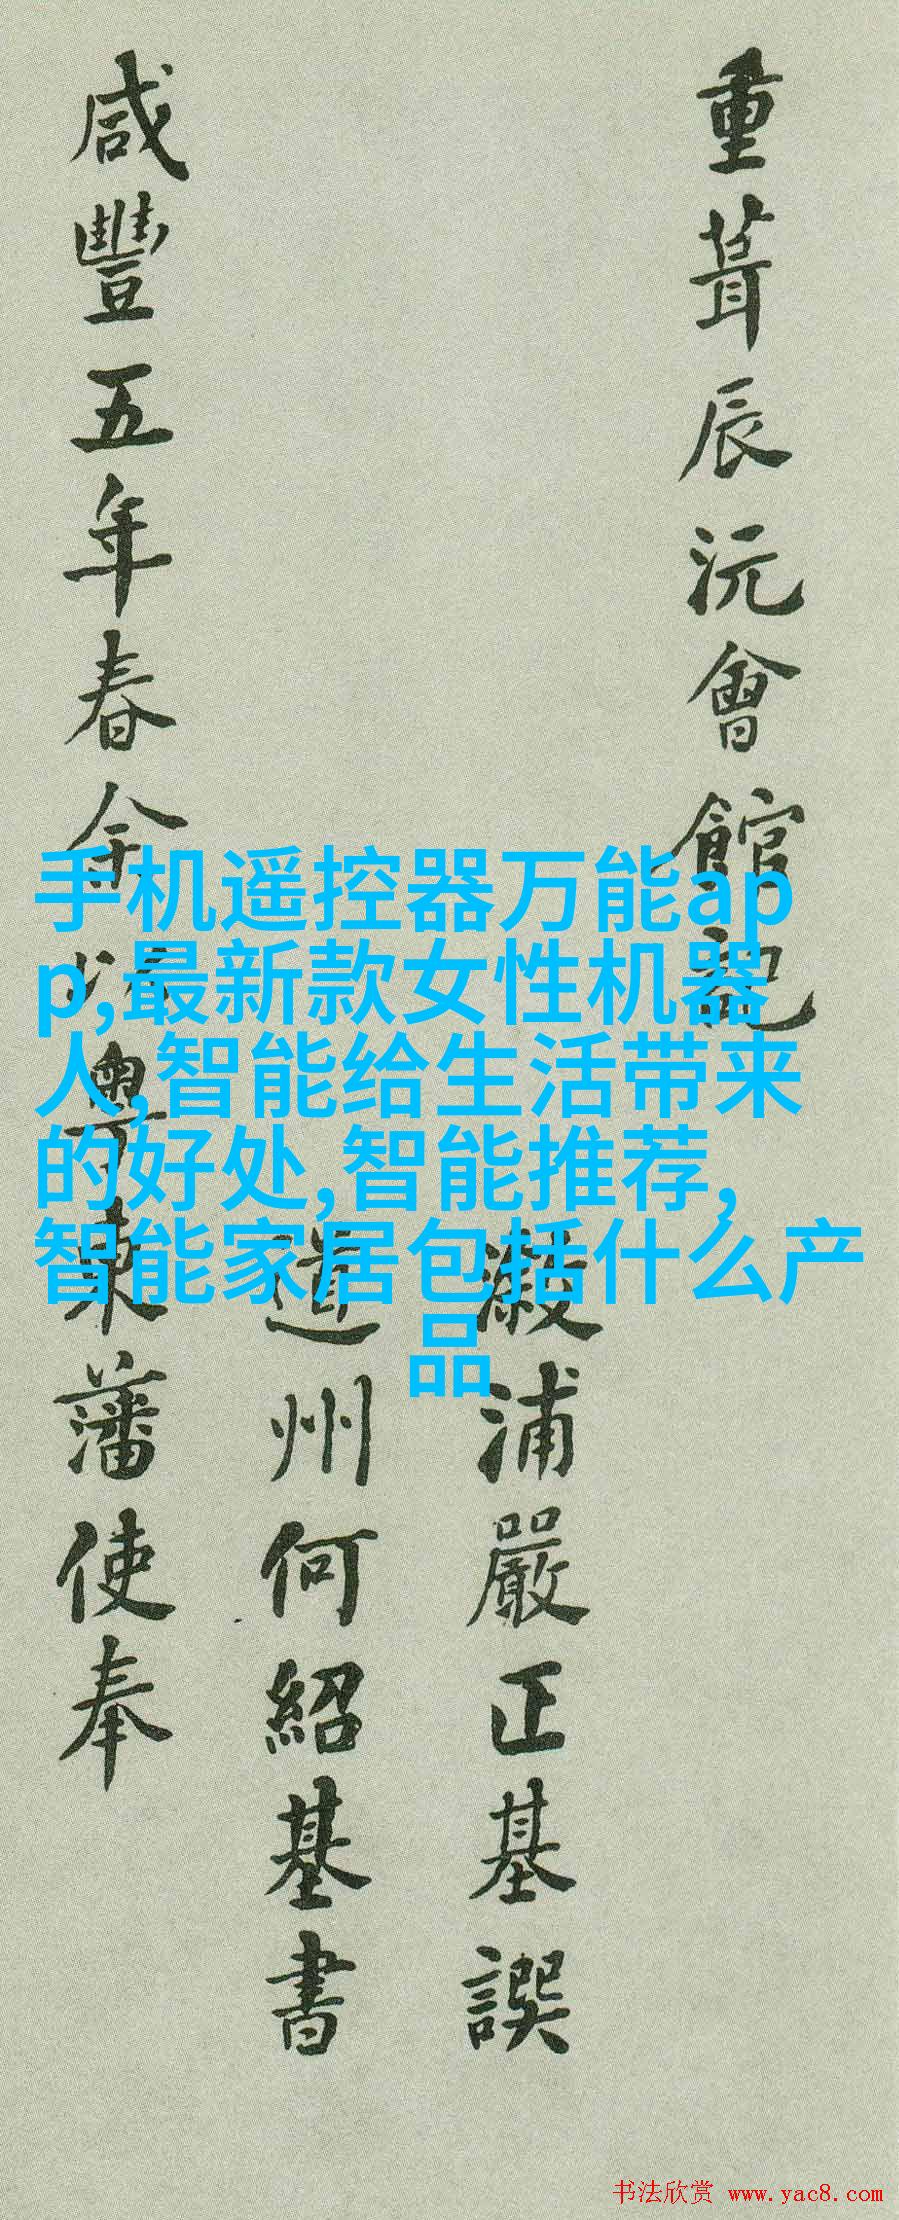 重葺辰沅會館記
溆浦嚴正基譔
道州何紹基書
咸豐五年春余以粤東藩使奉
手机遥控器万能ap
p,最新款女性机器
人,智能给生活带来
的好处,智能推荐,
智能家居包括什么产
品
书法欣赏 www.yac8.com